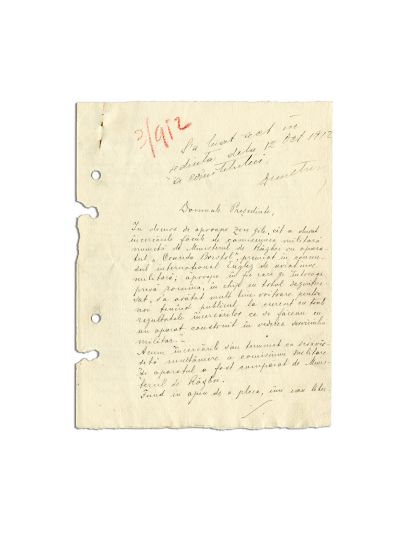 3/912
S'a luat act în
ședința dela 12 Oct 1912
a comitetului
Domnule Președinte,
In decurs de aproape zece zile, cât a durat
încercările făcute de comisiunea militară
numită de Ministerul de Răsboi cu apara-
tul "Coanda Bristol", premiat în concur-
sul internațional Englez de aviațiune
militară, aproape în fie care zi întreaga
presă română, în chip cu totul dezintere-
sat, s'a arătat mult bine voitoare pentru
noi ținând publicul la curent cu toate
rezultatele încercărilor ce se făceau cu
un aparat construit în vederea serviciului
militar.–
Acum încercările s'au terminat cu desăvâr-
șită mulțumire a comisiunei militare
și aparatul a fost cumpărat de Minis-
terul de Răsboi.
Fiind in ajun de a pleca, imi iau liber-